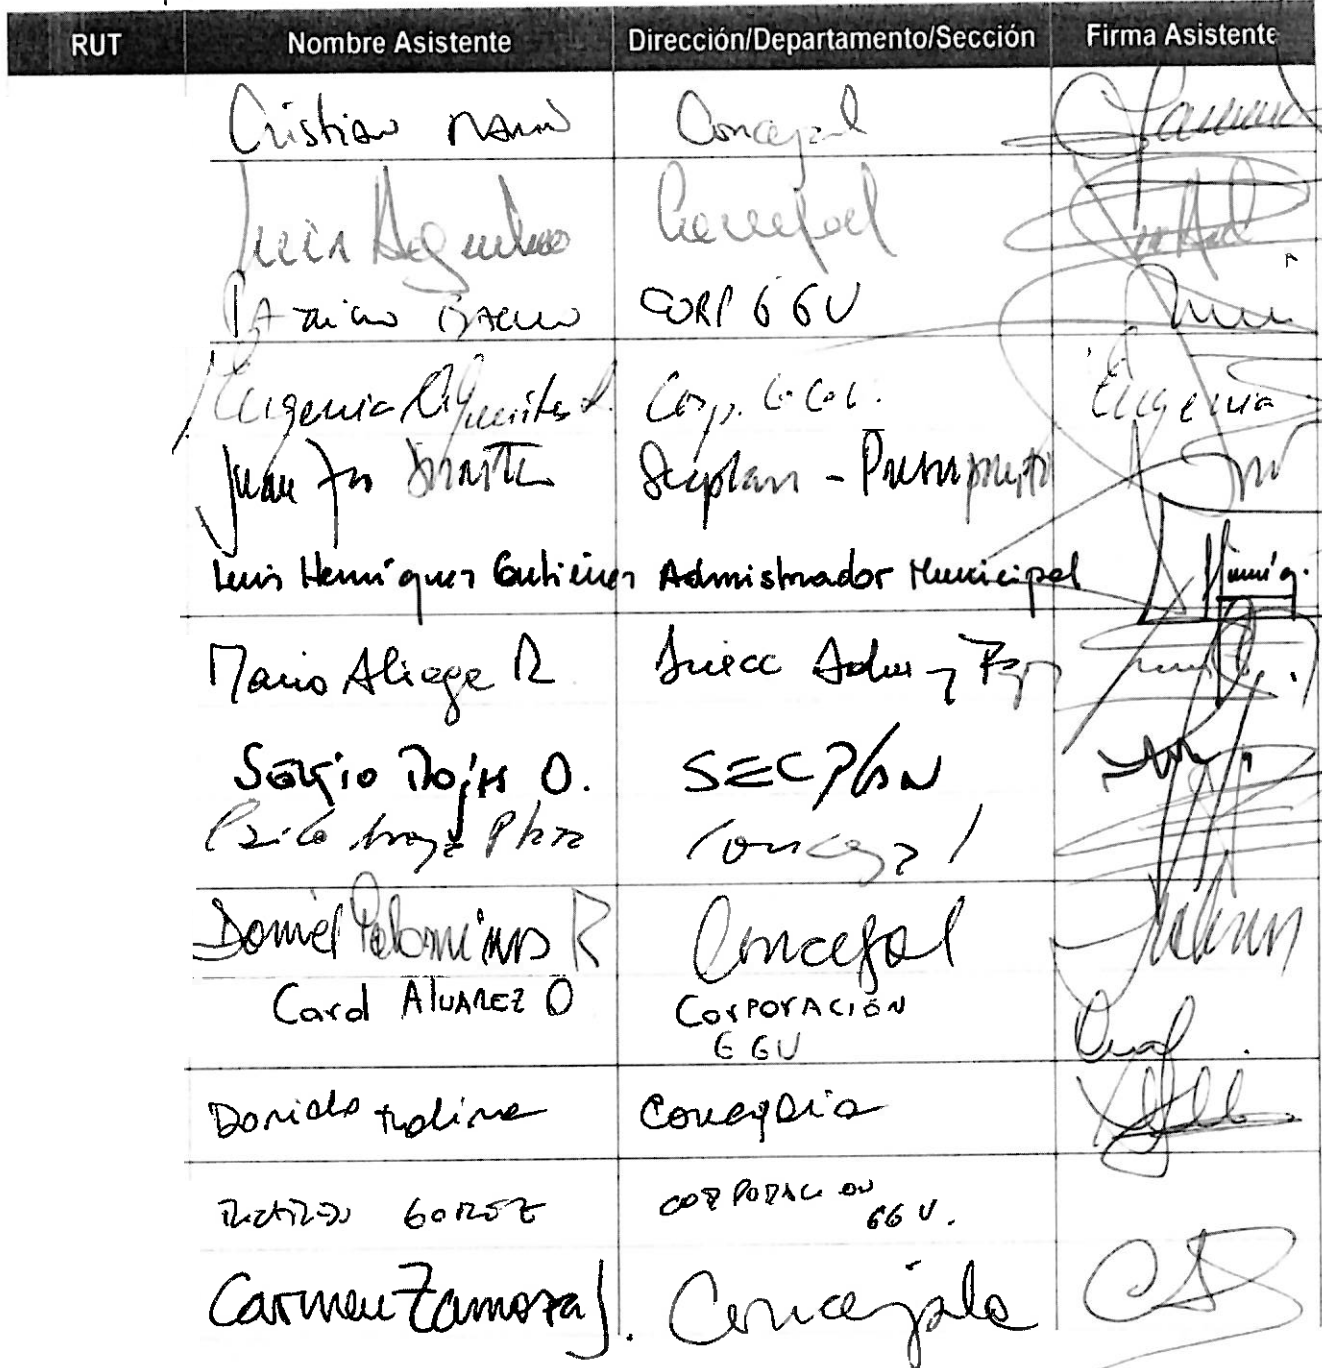 RUT Nombre Asistente Dirección/Departamento/Sección Firma Asistente
Cristian Marín Concejal
Luis Aguilera Concejal
Patricio Bacho CORP GGV
Eugenia Cifuentes L. Corp. G.G.V. Eugenia
Juan Fco Secplan - Presupuesto
Luis Henríquez Gutiérrez Admistrador Municipal
Mario Aliaga R Direcc Adm y Fzas
Sergio Rojas O. SECPLAN
Paulo Araya Plaza Concejal
Daniel Palominos R Concejal
Carol ALVAREZ O CORPORACIÓN
GGV
Daniela Molina Concejala
GOMEZ CORPORACION
GGV.
Carmen Zamora J. Concejala